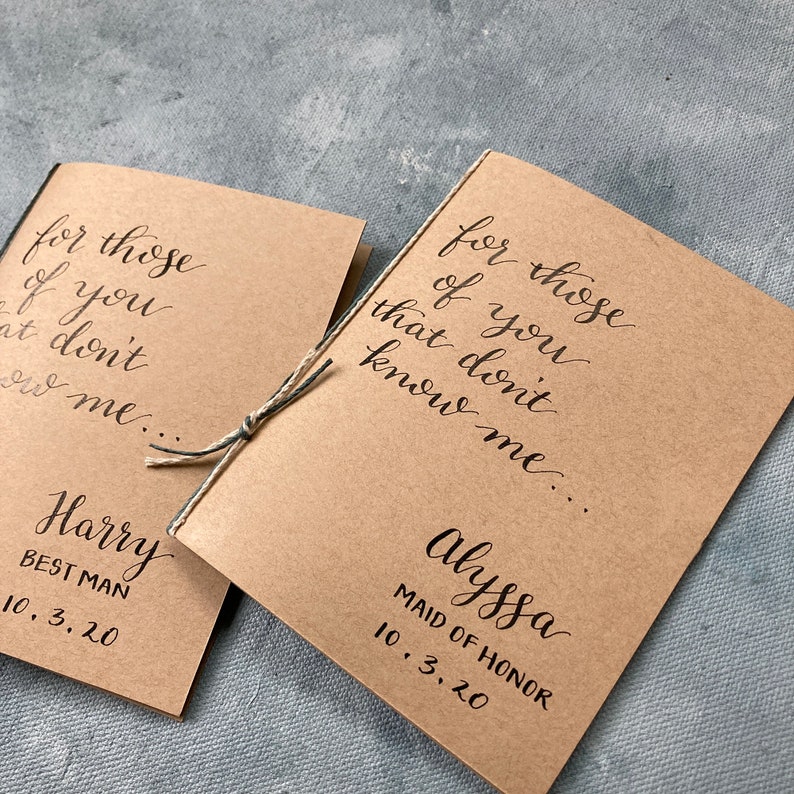 for those
of you
at don't
ow me...
Harry
BEST MAN
10.3.20
for those
of you
that don't
know me...
Alyssa
MAID OF HONOR
10.3.20